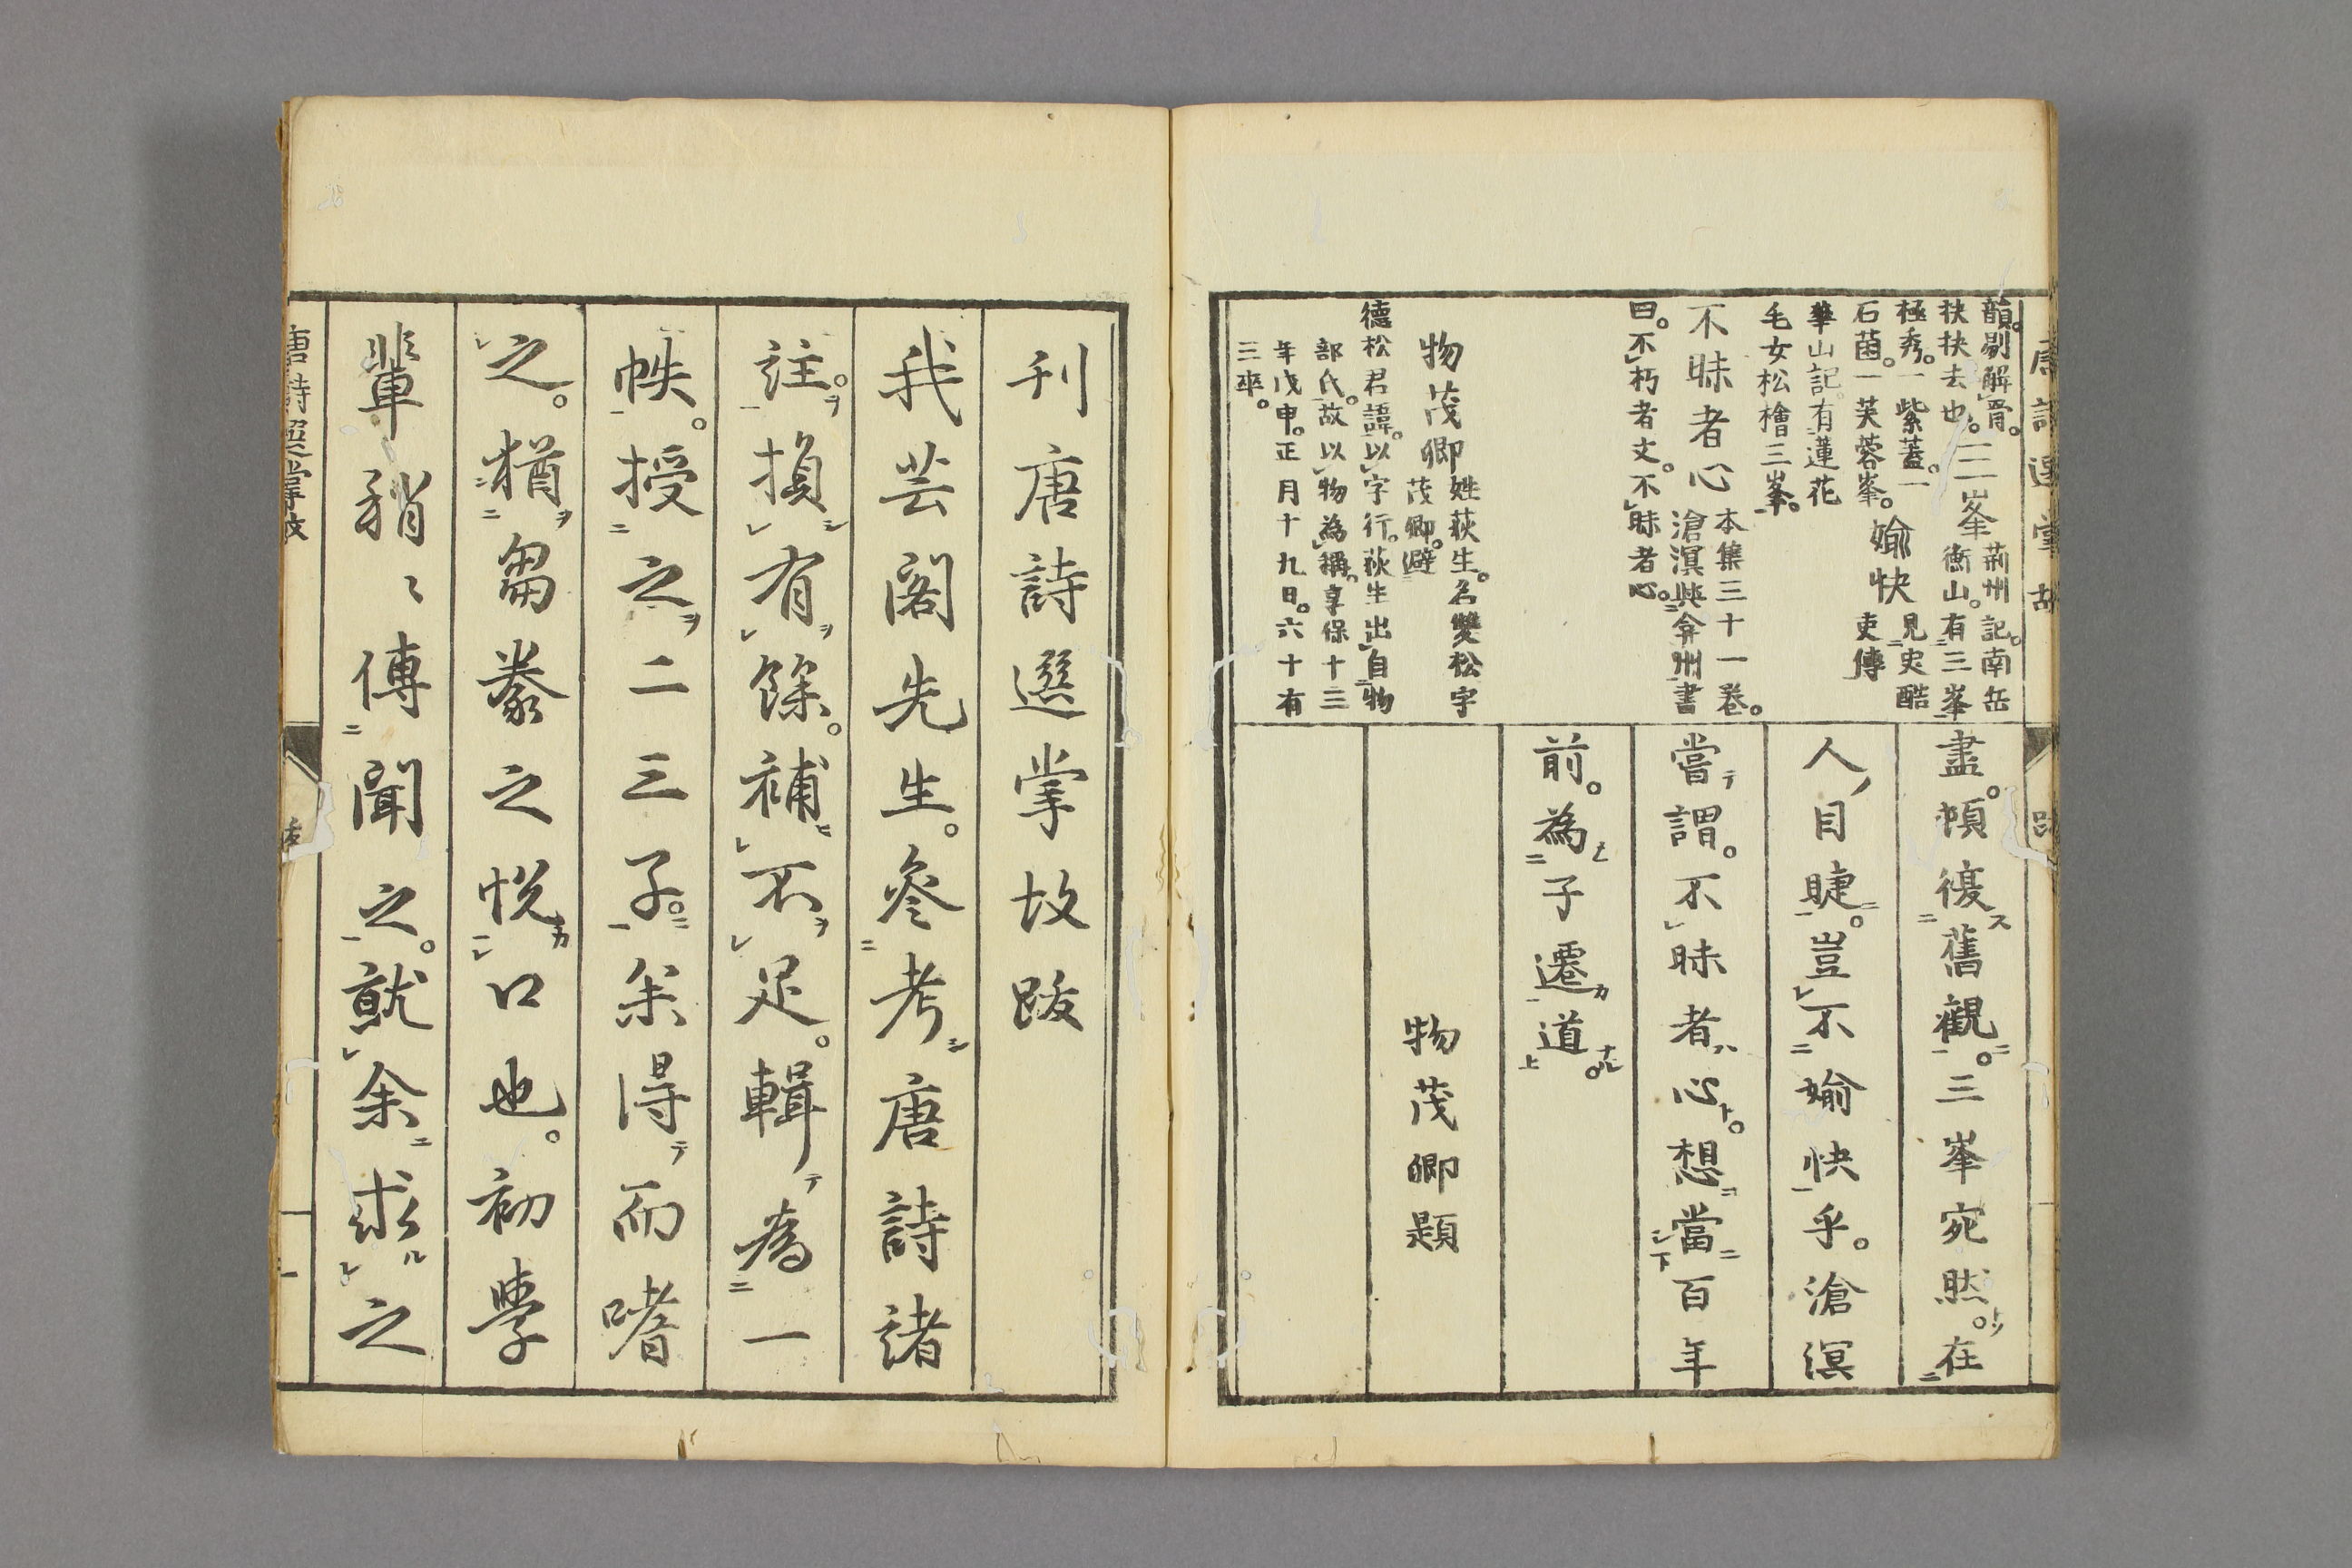 唐詩選掌故
跋
韻。剔解骨。
抉抉去也。
三峯
荊州記。南岳
衡山。有三峯
極秀。一紫蓋。一
石菌。一芙蓉峯。
華山記。有蓮花
毛女松檜三峯。
愉快
見史酷
吏傳
不昧者心
本集三十一卷。
滄溟與弇州書
曰。不朽者文。不昧者心。
物茂卿
姓荻生。名雙松字
茂卿。避
德松君諱。以字行。荻生出自物
部氏。故以物為稱。享保十三
年戊申。正月十九日。六十有
三卒。
盡。頓復舊觀。三峯宛然。在
人目睫。豈不愉快乎。滄溟
當謂。不昧者心。想當百年
前。為子遷道。
物茂卿題
刊唐詩選掌故跋
我芸閣先生。叅考唐詩諸
註。損有餘。補不足。輯為一
帙。授之二三子。余得而嗜
之。猶芻豢之悅口也。初學
輩稍々傳聞之。就余求之
唐詩選掌故